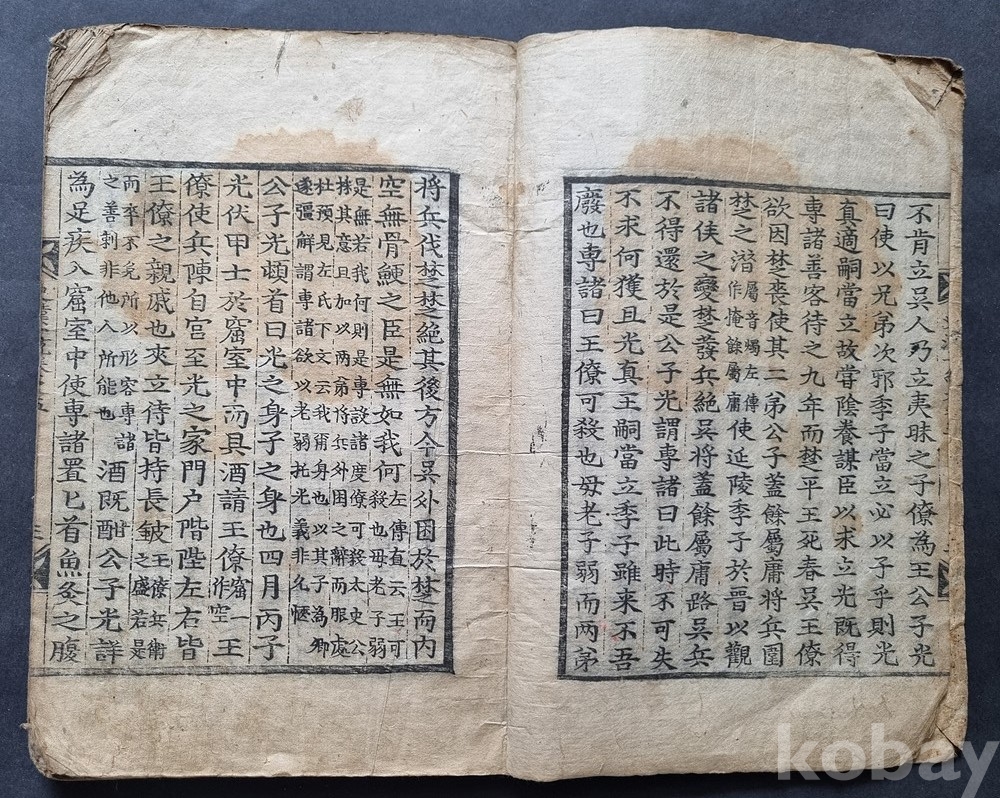 不肯立吳人乃立夷昧之子僚為王公子光
曰使以兄弟次邪季子當立必以子乎則光
真適嗣當立故嘗陰養謀臣以求立光既得
專諸善客待之九年而楚平王死春吳王僚
欲因楚喪使其二弟公子蓋餘屬庸將兵圍
楚之灊屬音燭左傳作掩餘屬庸使延陵季子於晉以觀
諸侯之變楚發兵絕吳將蓋餘屬庸路吳兵
不得還於是公子光謂專諸曰此時不可失
不求何獲且光真王嗣當立季子雖来不吾
廢也專諸曰王僚可殺也母老子弱而两弟
将兵伐楚楚絕其後方今吳外困於楚而内
空無骨鯁之臣是無如我何左傳直云王可殺也母老子弱
是無若我何則是專設諸度僚可殺太史公
據其意且加以两弟将兵外困之辭而服處
杜預見左氏下文云我爾身也以其子為卿
遂彊解謂專諸欲以老弱托光義非允愜
公子光頓首曰光之身子之身也四月丙子
光伏甲士於窟室中而具酒請王僚窟一作空王
僚使兵陳自宮至光之家門户階陛左右皆
王僚之親戚也夾立待皆持長鈹王僚兵衛之盛若是
而卒不免所以形容專諸之善刺非他人所能也酒既酣公子光詳
為足疾入窟室中使專諸置匕首魚炙之腹
kobay